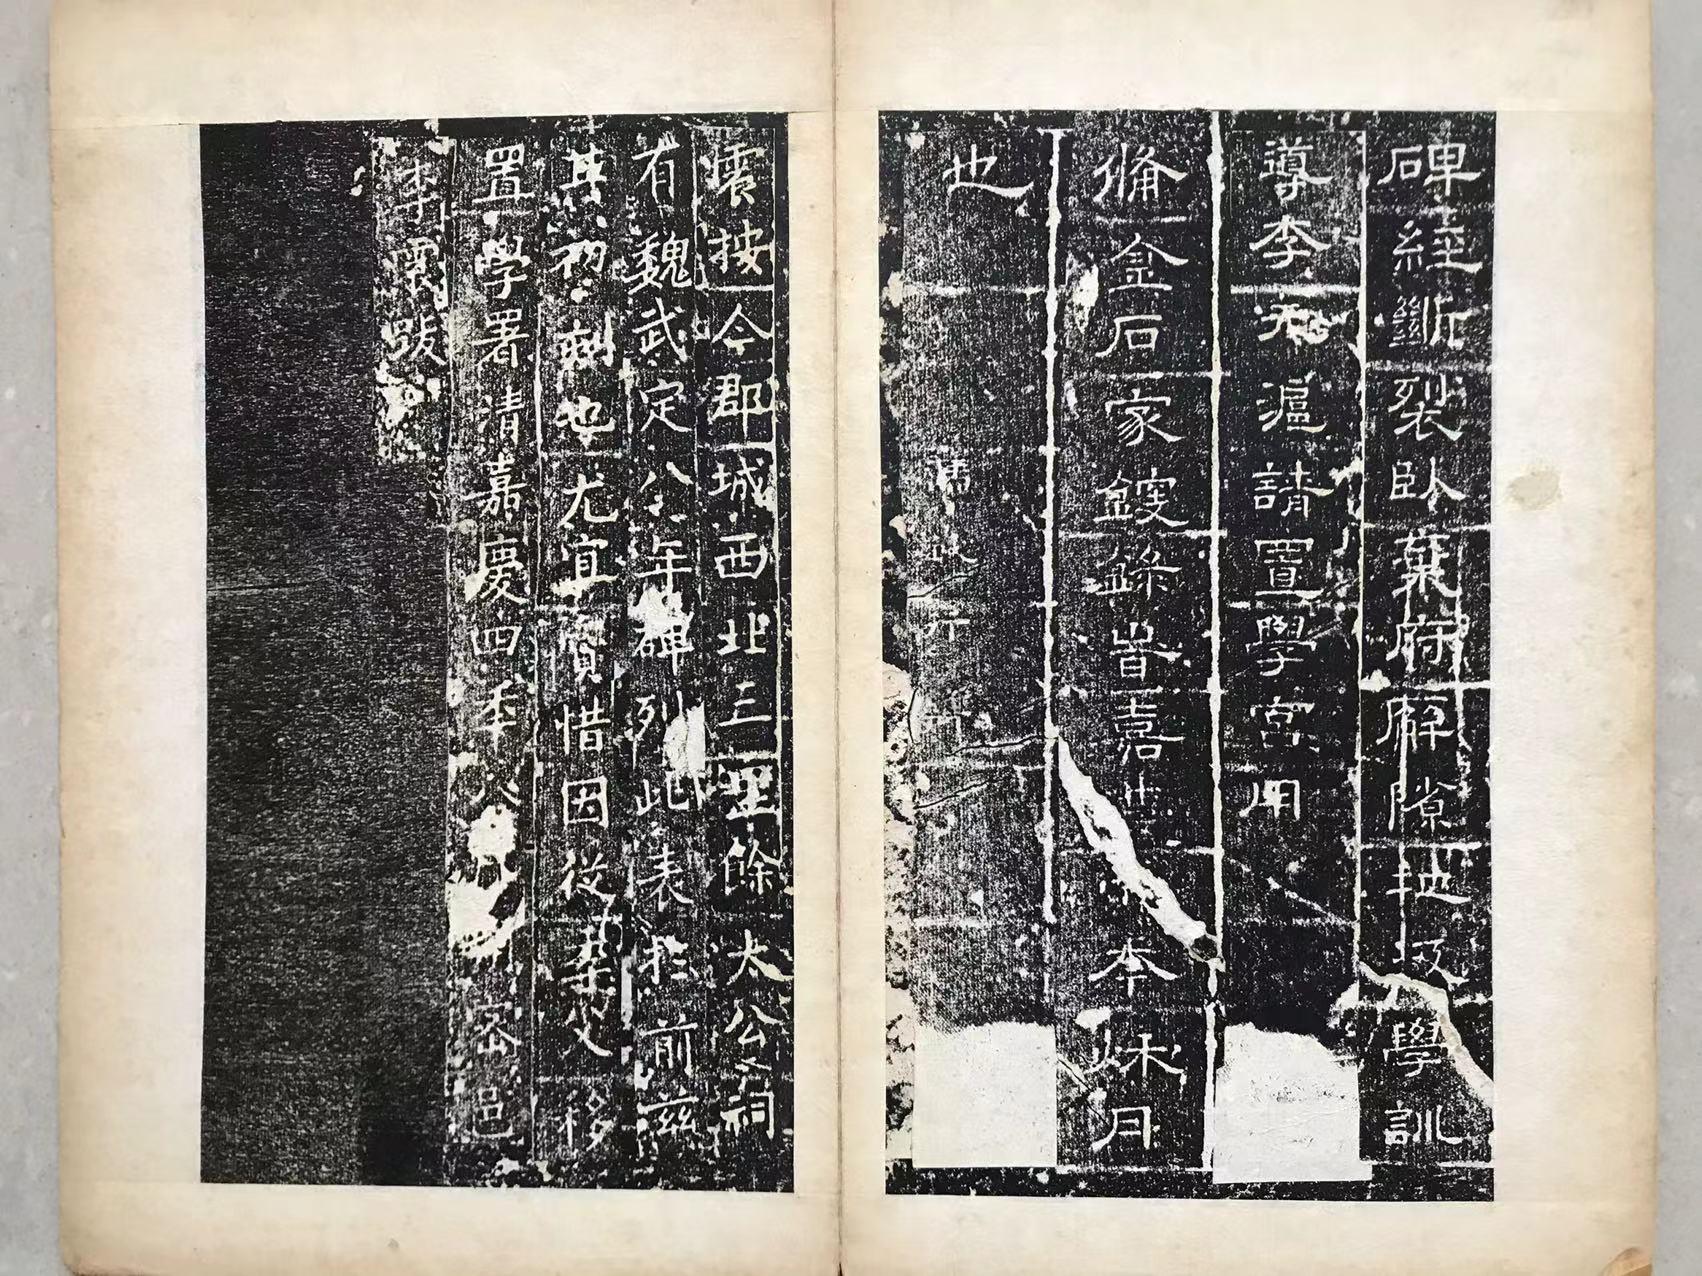 碑經斷裂臥棄府廨隙地攷學訓
導李元滬請置學宮用
俻金石家鍐錄旹嘉慶本秌月
也
震按今郡城西北三里餘太公祠
有魏武定八年碑列此表於前茲
其初刻也尤宜寶惜因從棄處移
置學署清嘉慶四年八月密邑
李震跋